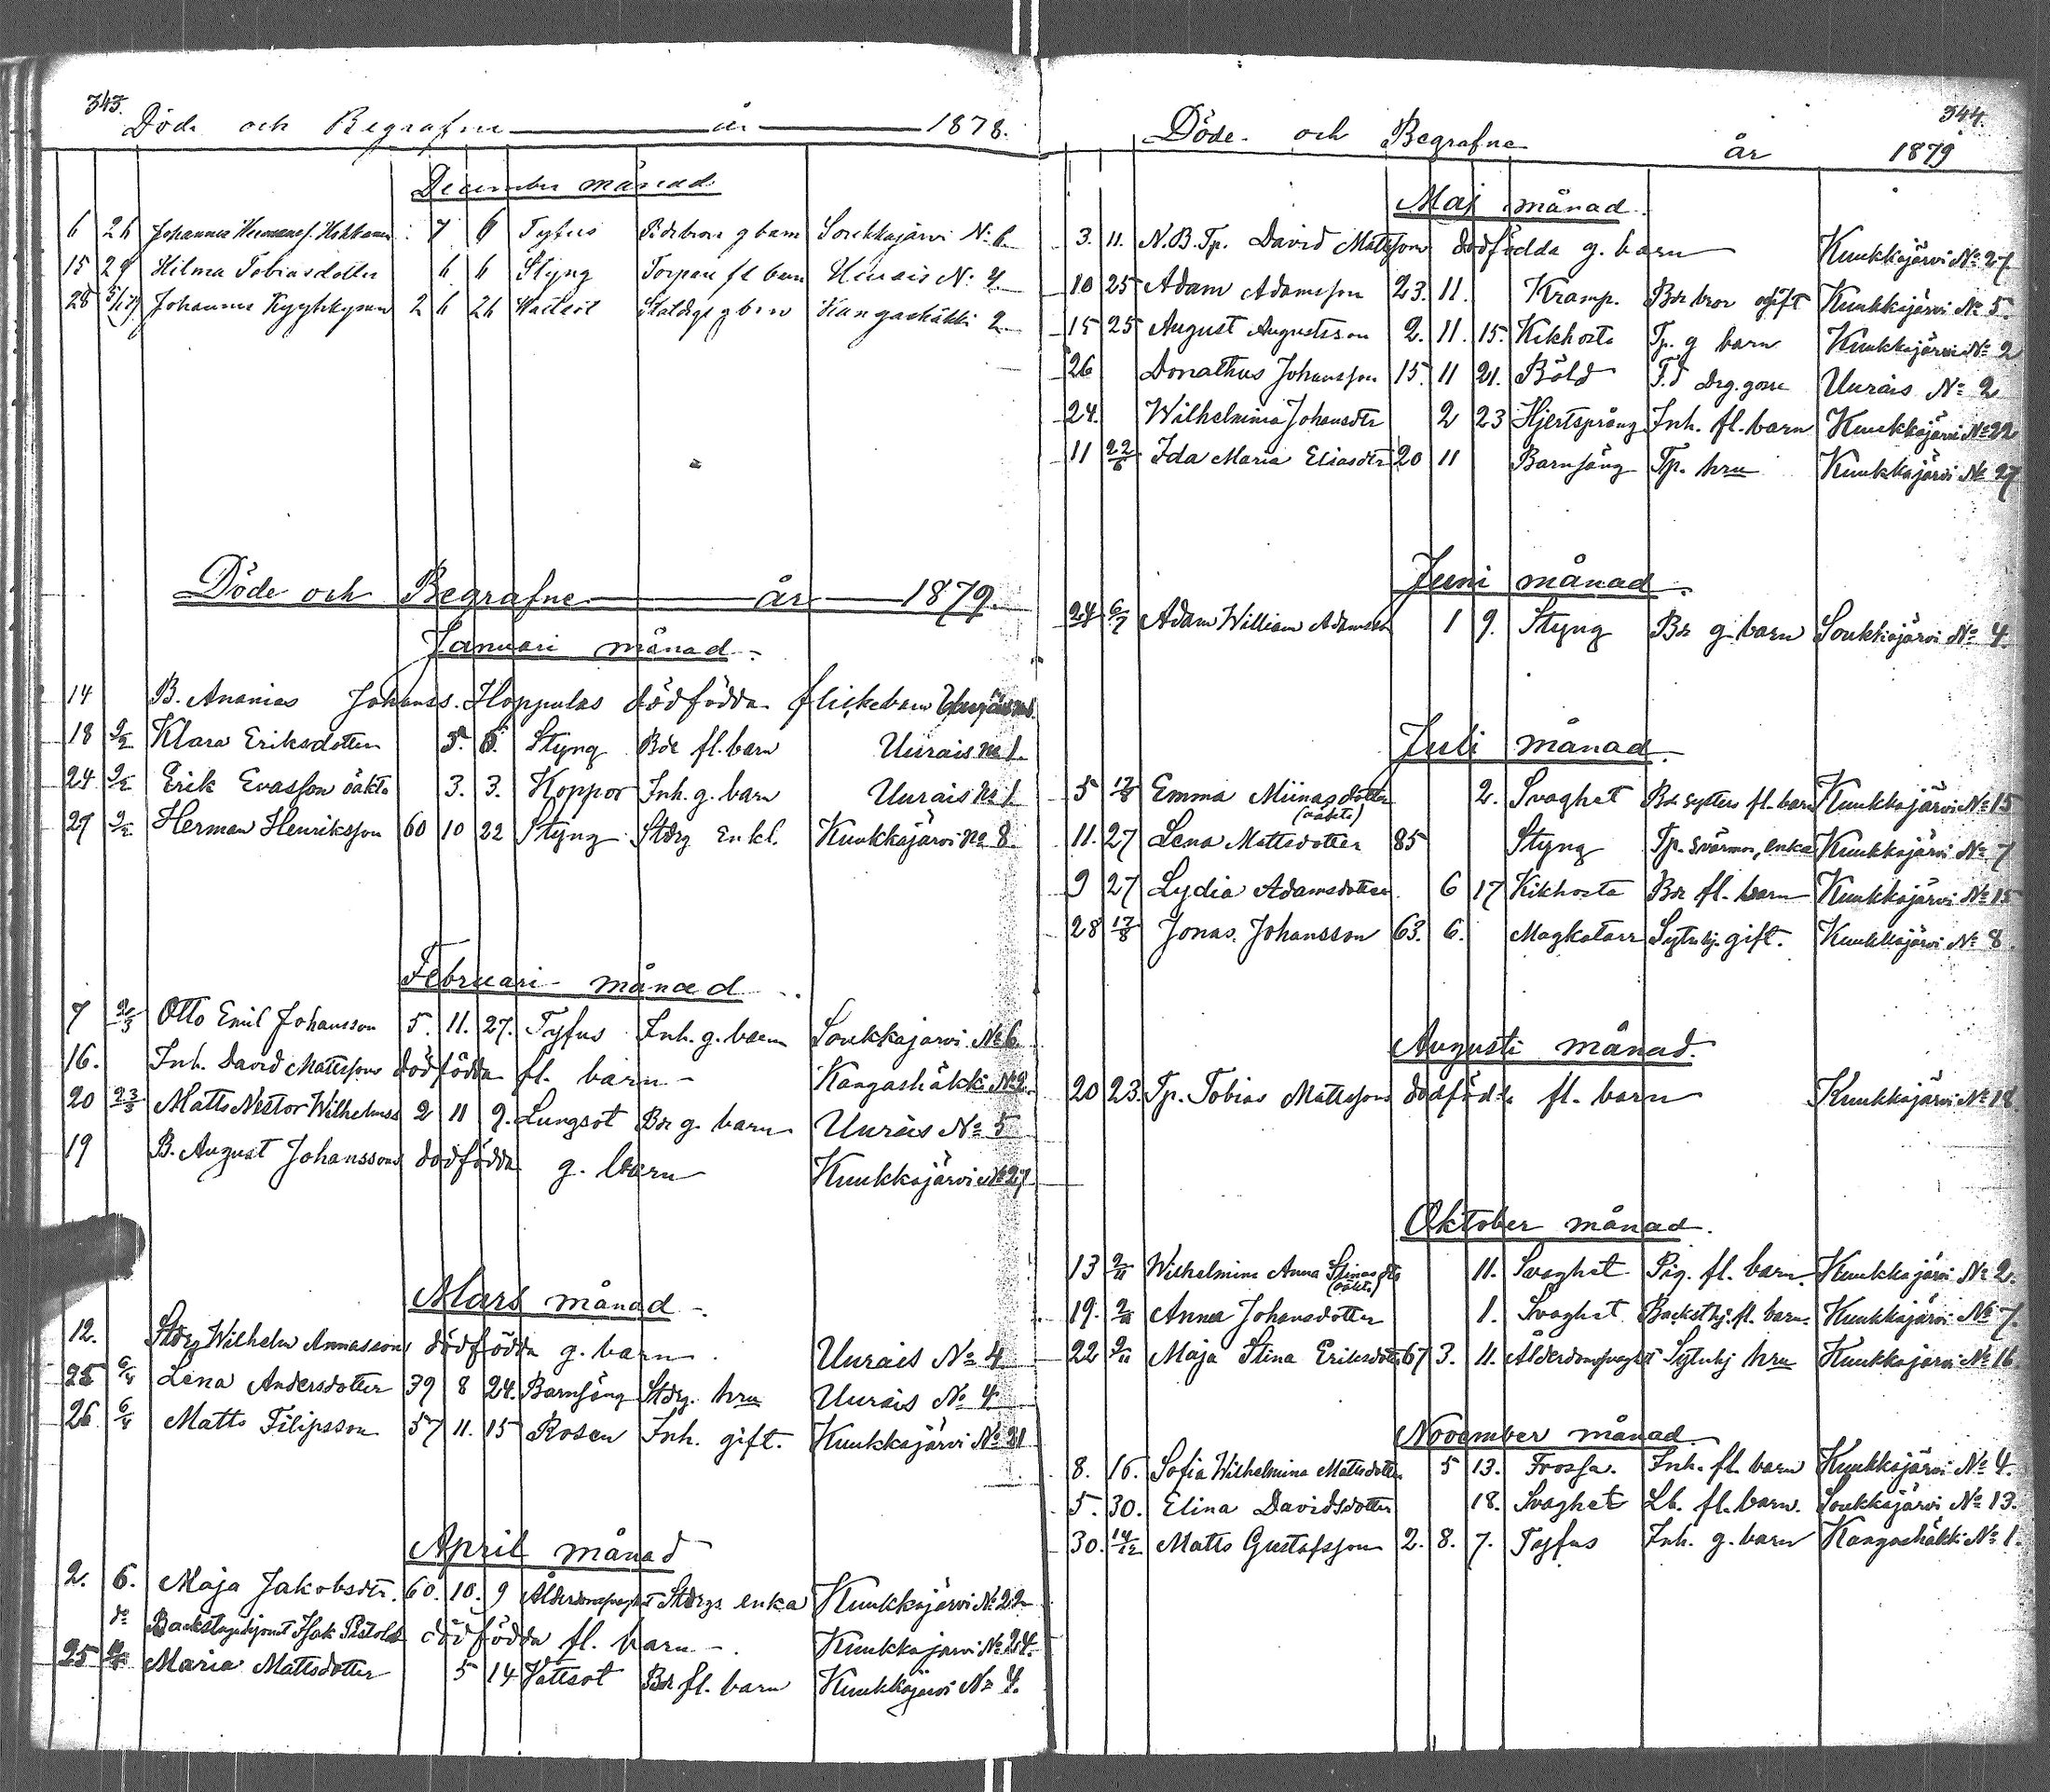 343.
Döde och Begrafne år 1878.
December månad
6 26 Johannes 7 6 Tyfus g barn Soukkajärvi No 6
15 29 Hilma Tobiasdotter 6 6 Styng Torpare fl barn Uurais No 4
28 5/1 79 Johannes 2 6 26 Wattsot g barn Kangashäkki 2
Döde och Begrafne år 1879.
Januari månad
14 B. Ananias Johanss. Hoppulas dödfödda flickebarn
18 9/2 Klara Eriksdotter 5. 5. Styng Bde fl. barn Uurais No 1.
24 9/2 Erik Evasson oäkta 3. 3. Koppor Inh. g. barn Uurais No 1
27 9/2 Herman Henriksson 60 10 22 Styng Stdrg Enkl. Kuukkajärvi No 8.
Februari månad
7 2/3 Otto Emil Johansson 5. 11. 27. Tyfus Inh. g. barn Soukkajärvi No 6.
16. Inh. David Mattssons dödfödda fl. barn Kangashäkki No 2.
20 23/3 Matts Nestor Wilhelmss 2 11 9. Lungsot Bde g. barn Uurais No 5
19 B. August Johanssons dödfödda g. barn Kuukkajärvi No 27
Mars månad
12. Stdrg Wilhelm Annassons dödfödda g. barn Uurais No 4
25 6/4 Lena Andersdotter 39 8 24. Barnsäng Stdrg. hru Uurais No 4.
26 6/4 Matts Filipsson 57 11. 15 Rosen Inh. gift. Kuukkajärvi No 21
April månad
2. 6. Maja Jakobsdtr. 60. 10. 9 Ålderdomssvaghet Stdrgs enka Kuukkajärvi No 22
do Isak dödfödda fl. barn Kuukkajärvi No 24.
25 Maria Mattsdotter 5 14 Vattsot Bde fl. barn Kuukkajärvi No 4.
344.
Döde och Begrafne år 1879
Maj månad
3. 11. N.B. Tp. David Mattssons dödfödda g. barn Kuukkajärvi No 27
10 25 Adam Adamsson 23. 11. Kramp. Bde bror ogift Kuukkajärvi No 5.
15 25 August Augustsson 2. 11. 15. Kikhosta Tp. g barn Kuukkajärvi No 2
26 Donathus Johansson 15. 11 21. Böld F.d drg. gosse Uurais No 2
24. Wilhelmina Johansdtr 2 23 Hjertsprång Inh. fl. barn Kuukkajärvi No 22
11 22/6 Ida Maria Eliasdtr 20 11 Barnsäng Tp. hru Kuukkajärvi No 27
Juni månad.
24 6/7 Adam William Adamsson 1 9. Styng Bde g. barn Soukkajärvi No 4.
Juli månad.
5 17/8 Emma Miinasdotter (oäkta) 2. Svaghet Bde systers fl. barn Kuukkajärvi No 15
11. 27 Lena Mattsdotter 85 Styng Tp. svärmor, enka Kuukkajärvi No 7
9 27 Lydia Adamsdotter 6 17 Kikhosta Bde fl. barn Kuukkajärvi No 15
28 17/8 Jonas Johansson 63. 6. Magkatarr Sytnhj. gift. Kuukkajärvi No 8.
Augusti månad.
20 23. Tp. Tobias Mattssons dödfödda fl. barn Kuukkajärvi No 18.
Oktober månad.
13 2/11 Wilhelmina Anna Stinas dtr (oäkta) 11. Svaghet Pig. fl. barn. Kuukkajärvi No 2.
19. 2/11 Anna Johansdotter 1. Svaghet Backsthj. fl. barn. Kuukkajärvi No 7.
22 9/11 Maja Stina Eriksdotter 67 3. 11. Ålderdomssvaghet Sytnhj hru Kuukkajärvi No 16.
November månad.
8. 16. Sofia Wilhelmina Mattsdotter 5 13. Frossa. Inh. fl. barn Kuukkajärvi No 4.
5. 30. Elina Davidsdotter 18. Svaghet Lb. fl. barn. Soukkajärvi No 13.
30. 14/12 Matts Gustafsson 2. 8. 7. Tyfus Inh. g. barn Kangashäkki No 1.